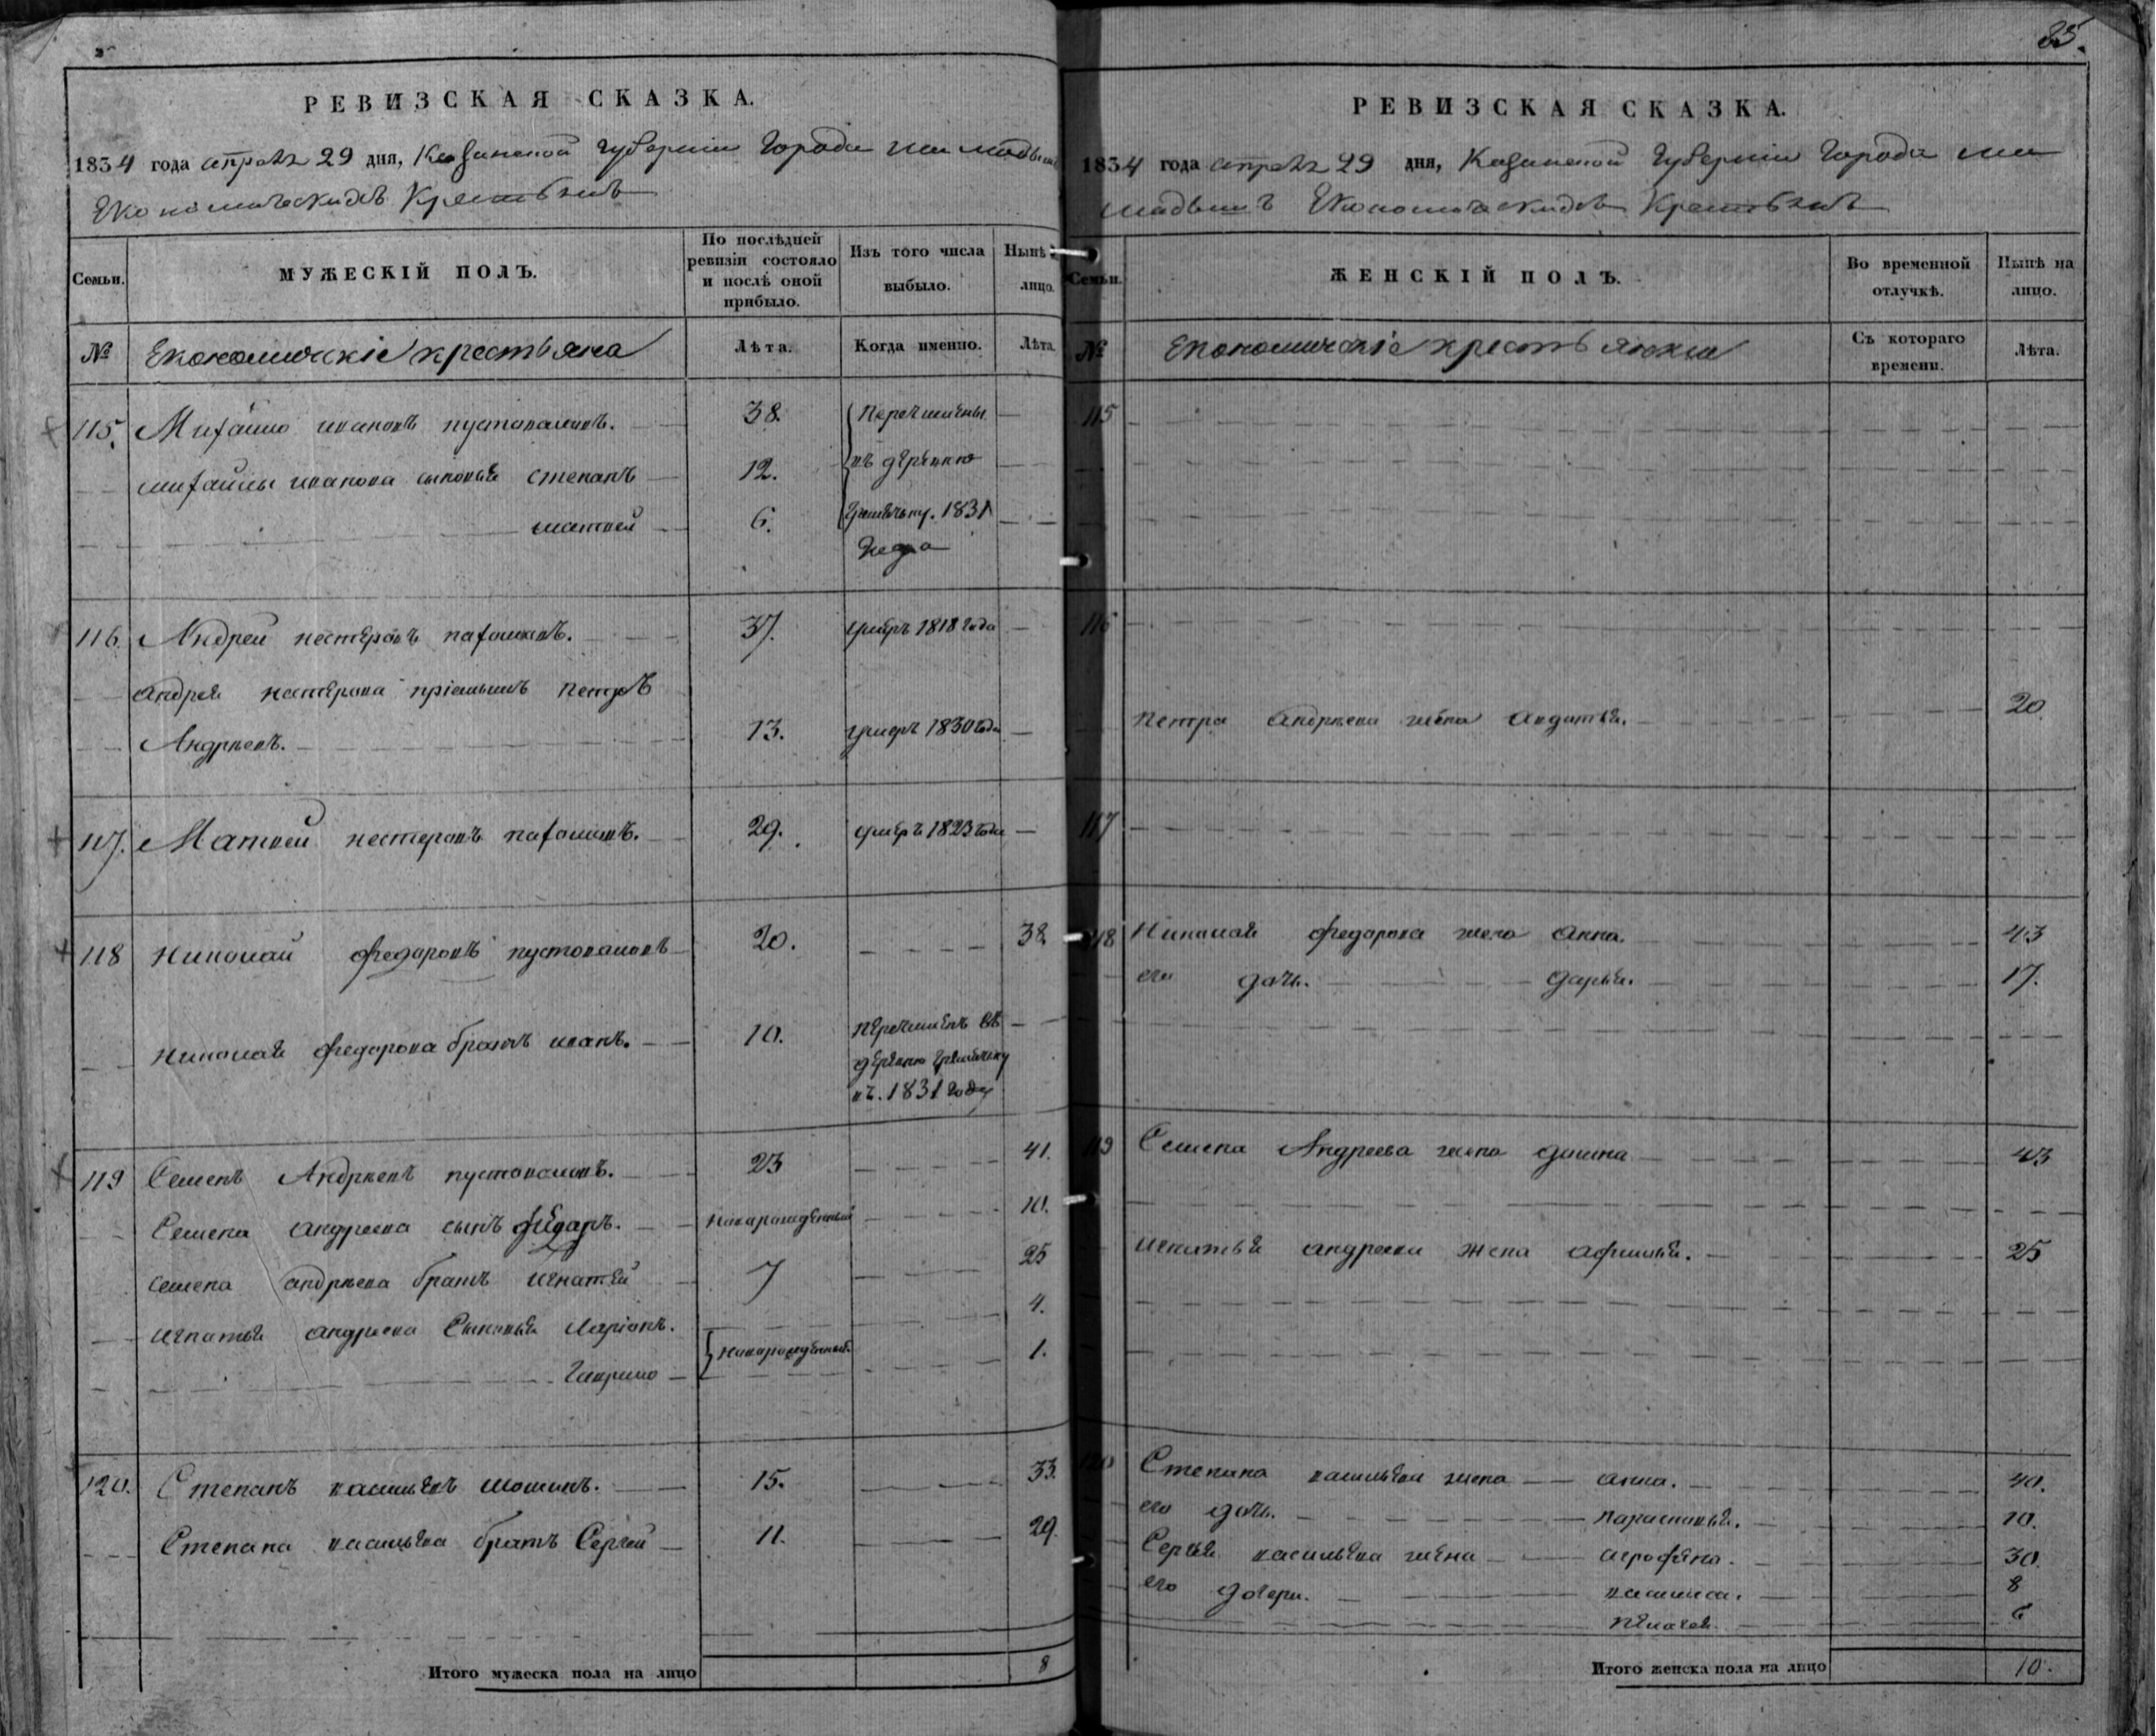 РЕВИЗСКАЯ СКАЗКА.
1834 года апреля 29 дня, Казанской Губернии Города
Економическихъ Крестьянъ
Семьи.
МУЖЕСКІЙ ПОЛЪ.
По послѣдней ревизіи состояло и послѣ оной прибыло.
Изъ того числа выбыло.
Нынѣ лицо.
№
Економическіе крестьяна
Лѣта.
Когда именно.
Лѣта.
115. Михайло ивановъ пустоваловъ. 38. Перечислены
михайлы иванова сыновья степанъ 12. въ деревню
матвей 6. 1831
года
116. Андрей нестеровъ пахомовъ. 37. умеръ 1818 года
андрея нестерова пріемышъ петръ
Андреевъ. 13. умеръ 1830 года
117. Матвей нестеровъ пахомовъ. 29. умеръ 1823 года
118 николай федоровъ пустоваловъ 20. 38
николая федорова братъ иванъ. 10. перечисленъ въ
деревню
въ. 1831 году
119 Семенъ Андреевъ пустоваловъ. 23 41.
Семена андреева сынъ федоръ. новорожденный 10.
семена андреева братъ игнатей 7 25
игнатья андреева Сыновья Ларіонъ. 4.
Гаврило новорожденные 1.
120. Степанъ васильевъ мошинъ. 15. 33.
Степана васильева братъ Сергей 11. 29.
Итого мужеска пола на лицо 8
85.
РЕВИЗСКАЯ СКАЗКА.
1834 года апреля 29 дня, Казанской Губерніи Города
Економическихъ Крестьянъ
Семьи.
ЖЕНСКІЙ ПОЛЪ.
Во временной отлучкѣ.
Нынѣ на лицо.
№
Економическіе крестьянки
Съ котораго времени.
Лѣта.
115
116
петра андреева жена авдотья. 20.
117
118 николая федорова жена анна. 43
его дочь. дарья. 17.
119 Семена Андреева жена 43
игнатья андреева жена афимья. 25
120 Степана васильева жена анна. 40.
его дочь. парасковья. 10.
Сергея васильева жена аграфена. 30.
его дочери. васильса. 8
пелагея. 6
Итого женска пола на лицо 10.